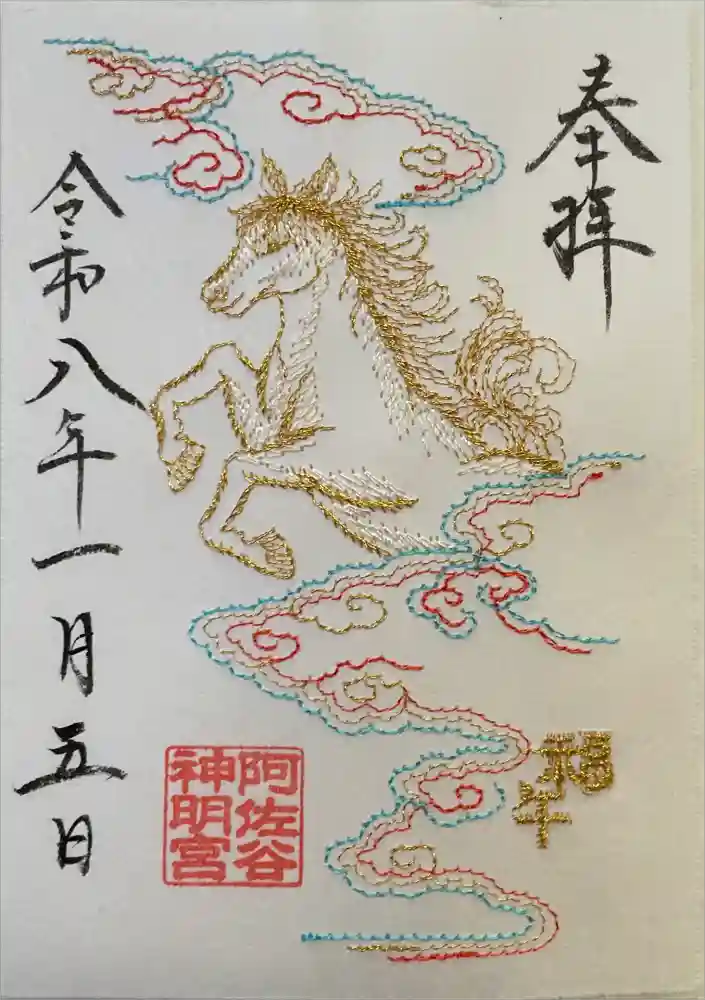 奉拝
福午
阿佐谷
神明宮
令和八年一月五日